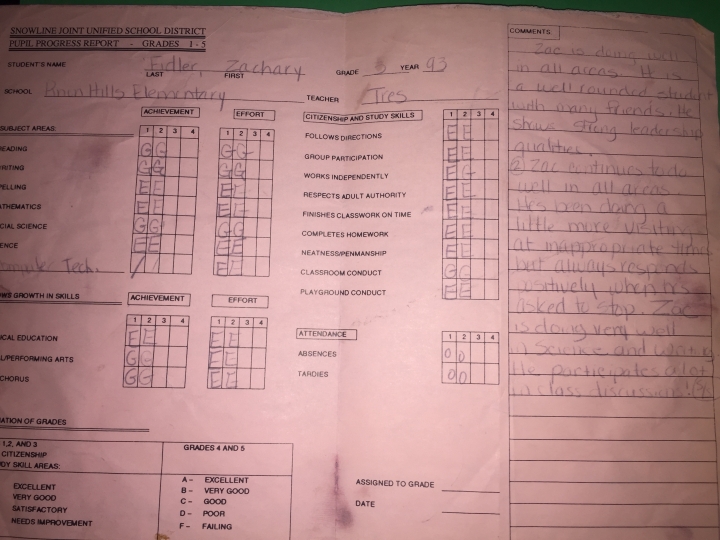 SNOWLINE JOINT UNIFIED SCHOOL DISTRICT
PUPIL PROGRESS REPORT - GRADES 1 - 5
STUDENT'S NAME Fidler, Zachary GRADE 3 YEAR 93
LAST FIRST
SCHOOL Elementary TEACHER Tres
ACHIEVEMENT EFFORT
SUBJECT AREAS: 1 2 3 4 1 2 3 4
EADING G G G G
RITING G G G G
PELLING E E E E
THEMATICS E E E E
CIAL SCIENCE G G G G
ENCE E E E E
Tech. E E
WS GROWTH IN SKILLS ACHIEVEMENT EFFORT
1 2 3 4 1 2 3 4
ICAL EDUCATION E E E E
L/PERFORMING ARTS G G E E
CHORUS G G E E
ATION OF GRADES
1,2, AND 3
CITIZENSHIP
DY SKILL AREAS:
EXCELLENT
VERY GOOD
SATISFACTORY
NEEDS IMPROVEMENT
GRADES 4 AND 5
A - EXCELLENT
B - VERY GOOD
C - GOOD
D - POOR
F - FAILING
CITIZENSHIP AND STUDY SKILLS 1 2 3 4
FOLLOWS DIRECTIONS E E
GROUP PARTICIPATION E E
WORKS INDEPENDENTLY E G
RESPECTS ADULT AUTHORITY E E
FINISHES CLASSWORK ON TIME E E
COMPLETES HOMEWORK E E
NEATNESS/PENMANSHIP E E
CLASSROOM CONDUCT G G
PLAYGROUND CONDUCT E E
ATTENDANCE 1 2 3 4
ABSENCES 0 0
TARDIES 0 0
ASSIGNED TO GRADE
DATE
COMMENTS
Zac is doing well
in all areas. He is
a well rounded student
with many friends. He
shows strong leadership
qualities.
② Zac continues to do
well in all areas
He's been doing a
little more visiting
at inappropriate times
but always responds
positively when he's
asked to stop. Zac
is doing very well
in Science and
He participates a lot
in class discussions!